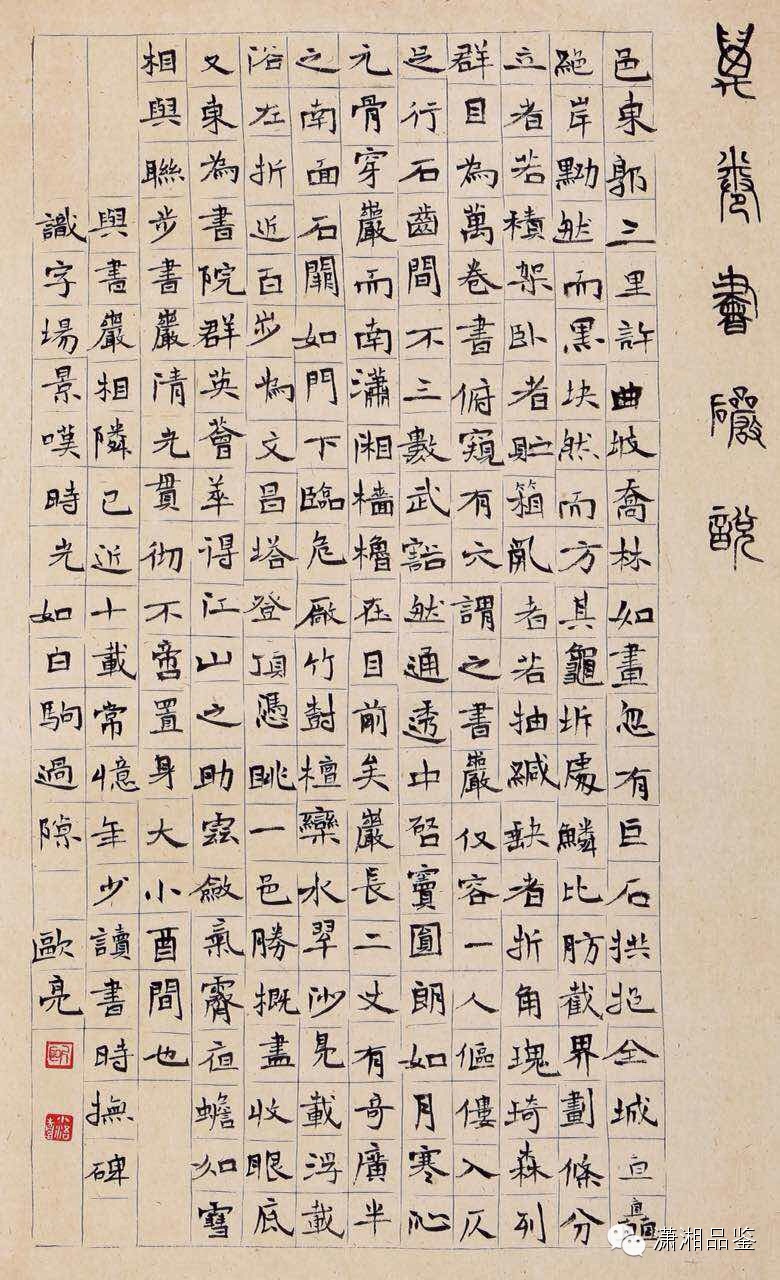 萬卷書巖說
邑東郭三里許曲坡喬林如畫忽有巨石拱抱全城矗
絕岸黝然而黑块然而方其龜坼處鱗比肪截界劃條分
立者若積架臥者貯箱亂者若抽緘缺者折角瑰琦森列
群目為萬卷書俯窺有穴謂之書巖仅容一人傴僂入仄
足行石齒間不三數武豁然通透中启竇圓朗如月寒沁
元骨穿巖而南瀟湘檣櫓在目前矣巖長二丈有奇廣半
之南面石關如門下臨危厰竹樹檀欒水翠沙晃載浮載
浴左折近百步為文昌塔登頂憑眺一邑勝概盡收眼底
又東為書院群英薈萃得江山之助雲斂氣霽夜蟾如雪
相與聯步書巖清光貫彻不啻置身大小酉間也
與書巖相隣已近十載常憶年少讀書時撫碑
識字場景嘆時光如白駒過隙 歐亮
潇湘品鉴